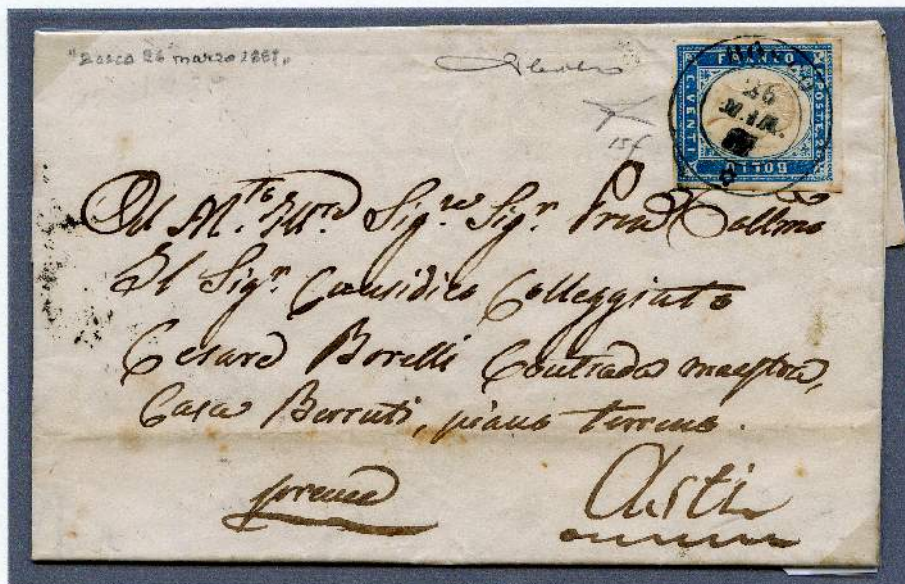 "Bosco 26 marzo 1861"
15f
FRANCO
POSTE 20
BOLLO
C. VENTI
BOSCO
26
MAR.
Al M.to Ill.re Sig.re Sig.r Pron
Il Sig.r Causidico Colleggiato
Cesare Borelli Contrada maestra,
Casa Berruti, piano terreno.
preme
Asti